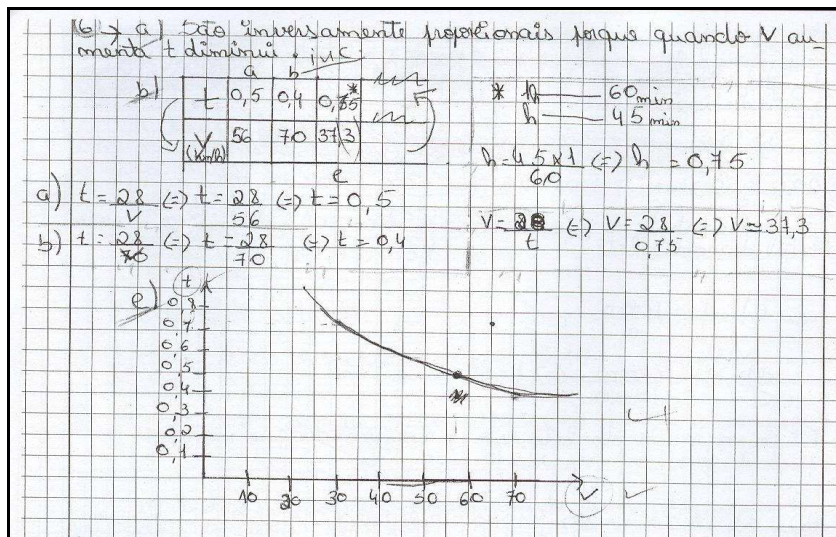 6 → a) São inversamente proporcionais porque quando V au-
menta t diminui. inc
a b
b) t 0,5 0,4 0,75*
V (km/h) 56 70 37(3)
e
* 1h —— 60min
h —— 45min
h = 45x1/60 (=) h = 0,75
a) t = 28/V (=) t = 28/56 (=) t = 0,5
V = 28/t (=) V = 28/0,75 (=) V ≃ 37,3
b) t = 28/70 (=) t = 28/70 (=) t = 0,4
e) t
0,8
0,7
0,6
0,5
0,4
0,3
0,2
0,1
10 20 30 40 50 60 70 V